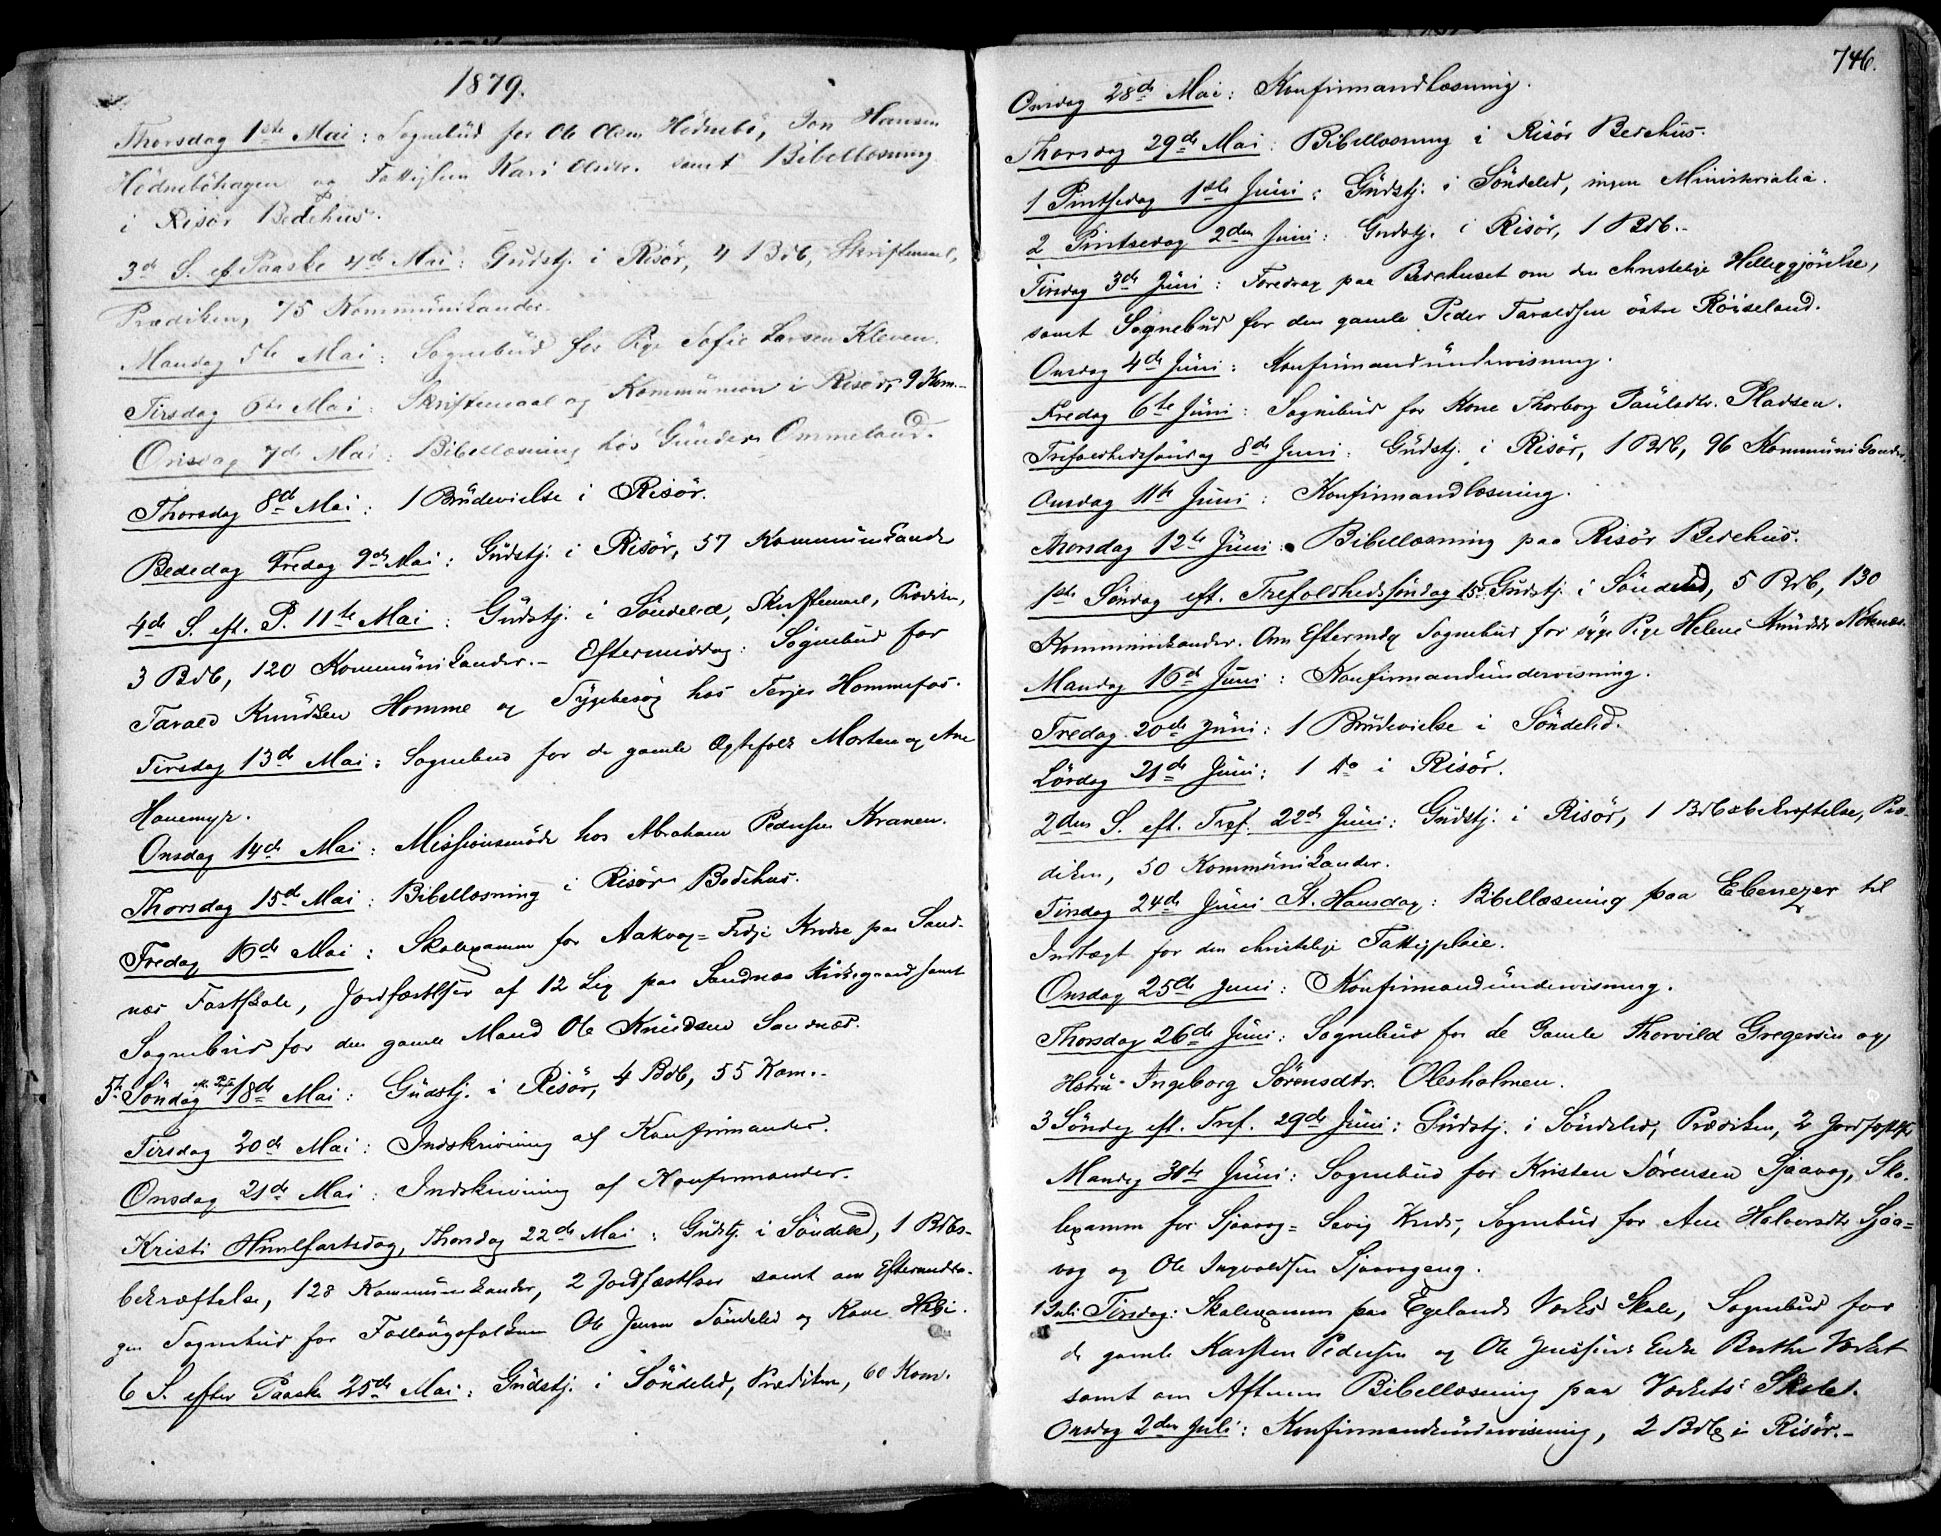 1879.
Thorsdag 1ste Mai: Sognebud for Ole Olsen Hödnebö, Jon Hansen
Hödneböhagen og Fattiglem Kari Olsdtr. samt Bibellæsning
i Risör Bedehus.
3de S. ef Paaske 4de Mai: Gudstj. i Risör, 4 Bdb, Skriftemaal,
Prædiken, 75 Kommunikander.
Mandag 5te Mai: Sognebud for Pige Sofie Larsen Kleven.
Tirsdag 6te Mai: Skriftemaal og Kommunion i Risör, 9 Kom.-
Onsdag 7de Mai: Bibellæsning hos Gunder Ommeland.
Thorsdag 8de Mai: 1 Brudevielse i Risör.
Bededag Fredag 9de Mai: Gudstj. i Risör, 57 Kommunikande
4de S. eft. P. 11te Mai: Gudstj. i Söndeled, Skriftemaal, Prædiken,
3 Bdb, 120 Kommunikander.- Eftermiddag: Sognebud for
Tarald Knudsen Homme og Sygebesøg hos Terjer Hommefos.
Tirsdag 13de Mai: Sognebud for de gamle Ægtefolk Morten og Ane
Hanemyr.
Onsdag 14de Mai: Missionsmöde hos Abraham Pedersen Kranen.
Thorsdag 15de Mai: Bibellæsning i Risör Bedehus.
Fredag 16de Mai: Skolexamen for Aakvag= Fidje Kreds paa Sand-
næs Fastskole, Jordfæstelser af 12 Lig paa Sandnæs Kirkegaard samt
Sognebud for den gamle Mand Ole Knudsen Sandnæs.
5te Söndag eft. P. 18de Mai: Gudstj. i Risör, 4 Bdb, 55 Kom.-
Tirsdag 20de Mai: Indskrivning af Konfirmander.
Onsdag 21de Mai: Indskrivning af Konfirmander.
Kristi Himlfartsdag, Thorsdag 22de Mai: Gudstj. i Söndeled, 1 Bdbs-
bekræftelse, 128 Kommunikander, 2 Jordfæstelser samt om Eftermidda-
gen Sognebud for Ole Jensen Söndeled og Kone
6 S. efter Paaske 25de Mai: Gudstj. i Söndeled, Prædiken, 60 Kom.
746.
Onsdag 28de Mai: Konfirmandlæsning.
Thorsdag 29de Mai: Bibellæsning i Risör Bedehus.
1 Pintsedag 1ste Juni: Gudstj. i Söndeled, ingen Ministerialia.
2 Pintsedag 2den Juni: Gudstj. i Risör, 1 Bdb.-
Tirsdag 3de Juni: Foredrag paa Bedehuset om den christelige Helliggjörelse,
samt Sognebud for den gamle Peder Taraldsen östre Röiseland.
Onsdag 4de Juni: Konfirmandundervisning.
Fredag 6te Juni: Sognebud for Kone Thorborg Paulsdtr. Pladsen.
Trefoldhedssöndag 8de Juni: Gudstj. i Risör, 1 Bdb, 96 Kommunikander,
Onsdag 11te Juni: Konfirmandlæsning.
Thorsdag 12te Juni: Bibellæsning paa Risör Bedehus.
1ste Söndag eft. Trefoldhedssöndag 15de Gudstj. i Söndeled, 5 Bdb, 130
Kommunikander. Om Eftermdg Sognebud for syge Pige Helene Knudsdtr
Mandag 16de Juni: Konfirmandundervisning.
Fredag 20de Juni: 1 Brudevielse i Söndeled.
Lördag 21de Juni: 1 do i Risör.
2den S. eft. Tref. 22de Juni: Gudstj. i Risör, 1 Bdbsbekræftelse, Præ-
diken, 50 Kommunikander.
Tirsdag 24de Juni St. Hansdag: Bibellæsning paa Ebenezer til
Indtægt for den christelige Fattigpleie.
Onsdag 25de Juni: Konfirmandundervisning.
Thorsdag 26de Juni: Sognebud for de Gamle Thorvild Gregersen og
Hstru Ingeborg Sørensdtr. Olesholmen.
3 Söndag eft. Tref. 29de Juni: Gudstj. i Söndeled, Prædiken, 2 Jordfæstelser
Mandag 30te Juni: Sognebud for Kristen Sørensen Sjaavag, Sko-
lexamen for Sjaavag= Sevig Kreds, Sognebud for Ane Halvorsdtr Sjaa=
vag og Ole Ingvaldsen Sjaavageng.
1 Juli Tirsdag: Skolexamen paa Egelands Værks Skole, Sognebud for
de gamle Karsten Pedersen og Ole Jenssens Enke Berthe Værket
samt om Aftenen Bibellæsning paa Værkets Skole.
Onsdag 2den Juli: Konfirmandundervisning, 2 Bdb i Risör.-